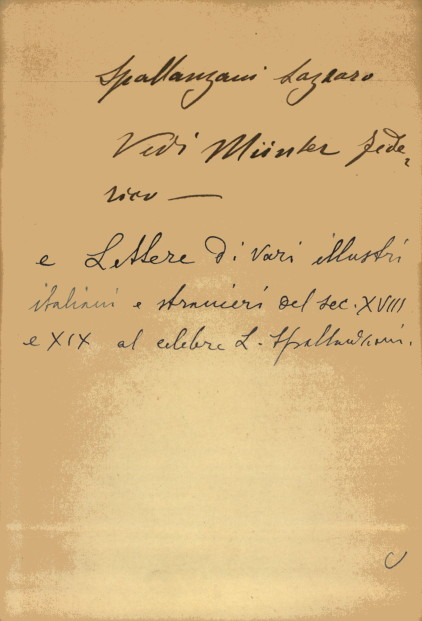 Spallanzani Lazzaro
Vedi Münter Fede-
rico —
e Lettere di vari illustri
italiani e stranieri del sec. XVIII
e XIX al celebre L. Spallanzani.